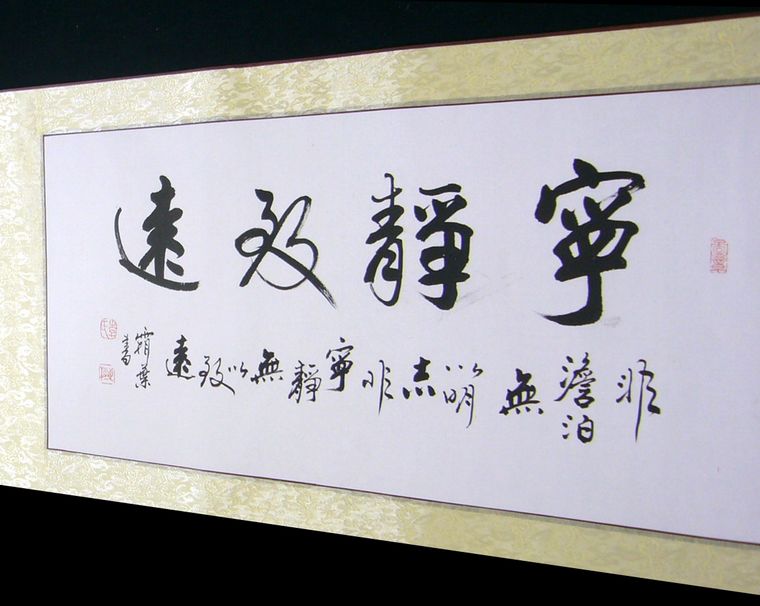 寧靜致遠
非澹泊無以明志非寧靜無以致遠
霜葉書